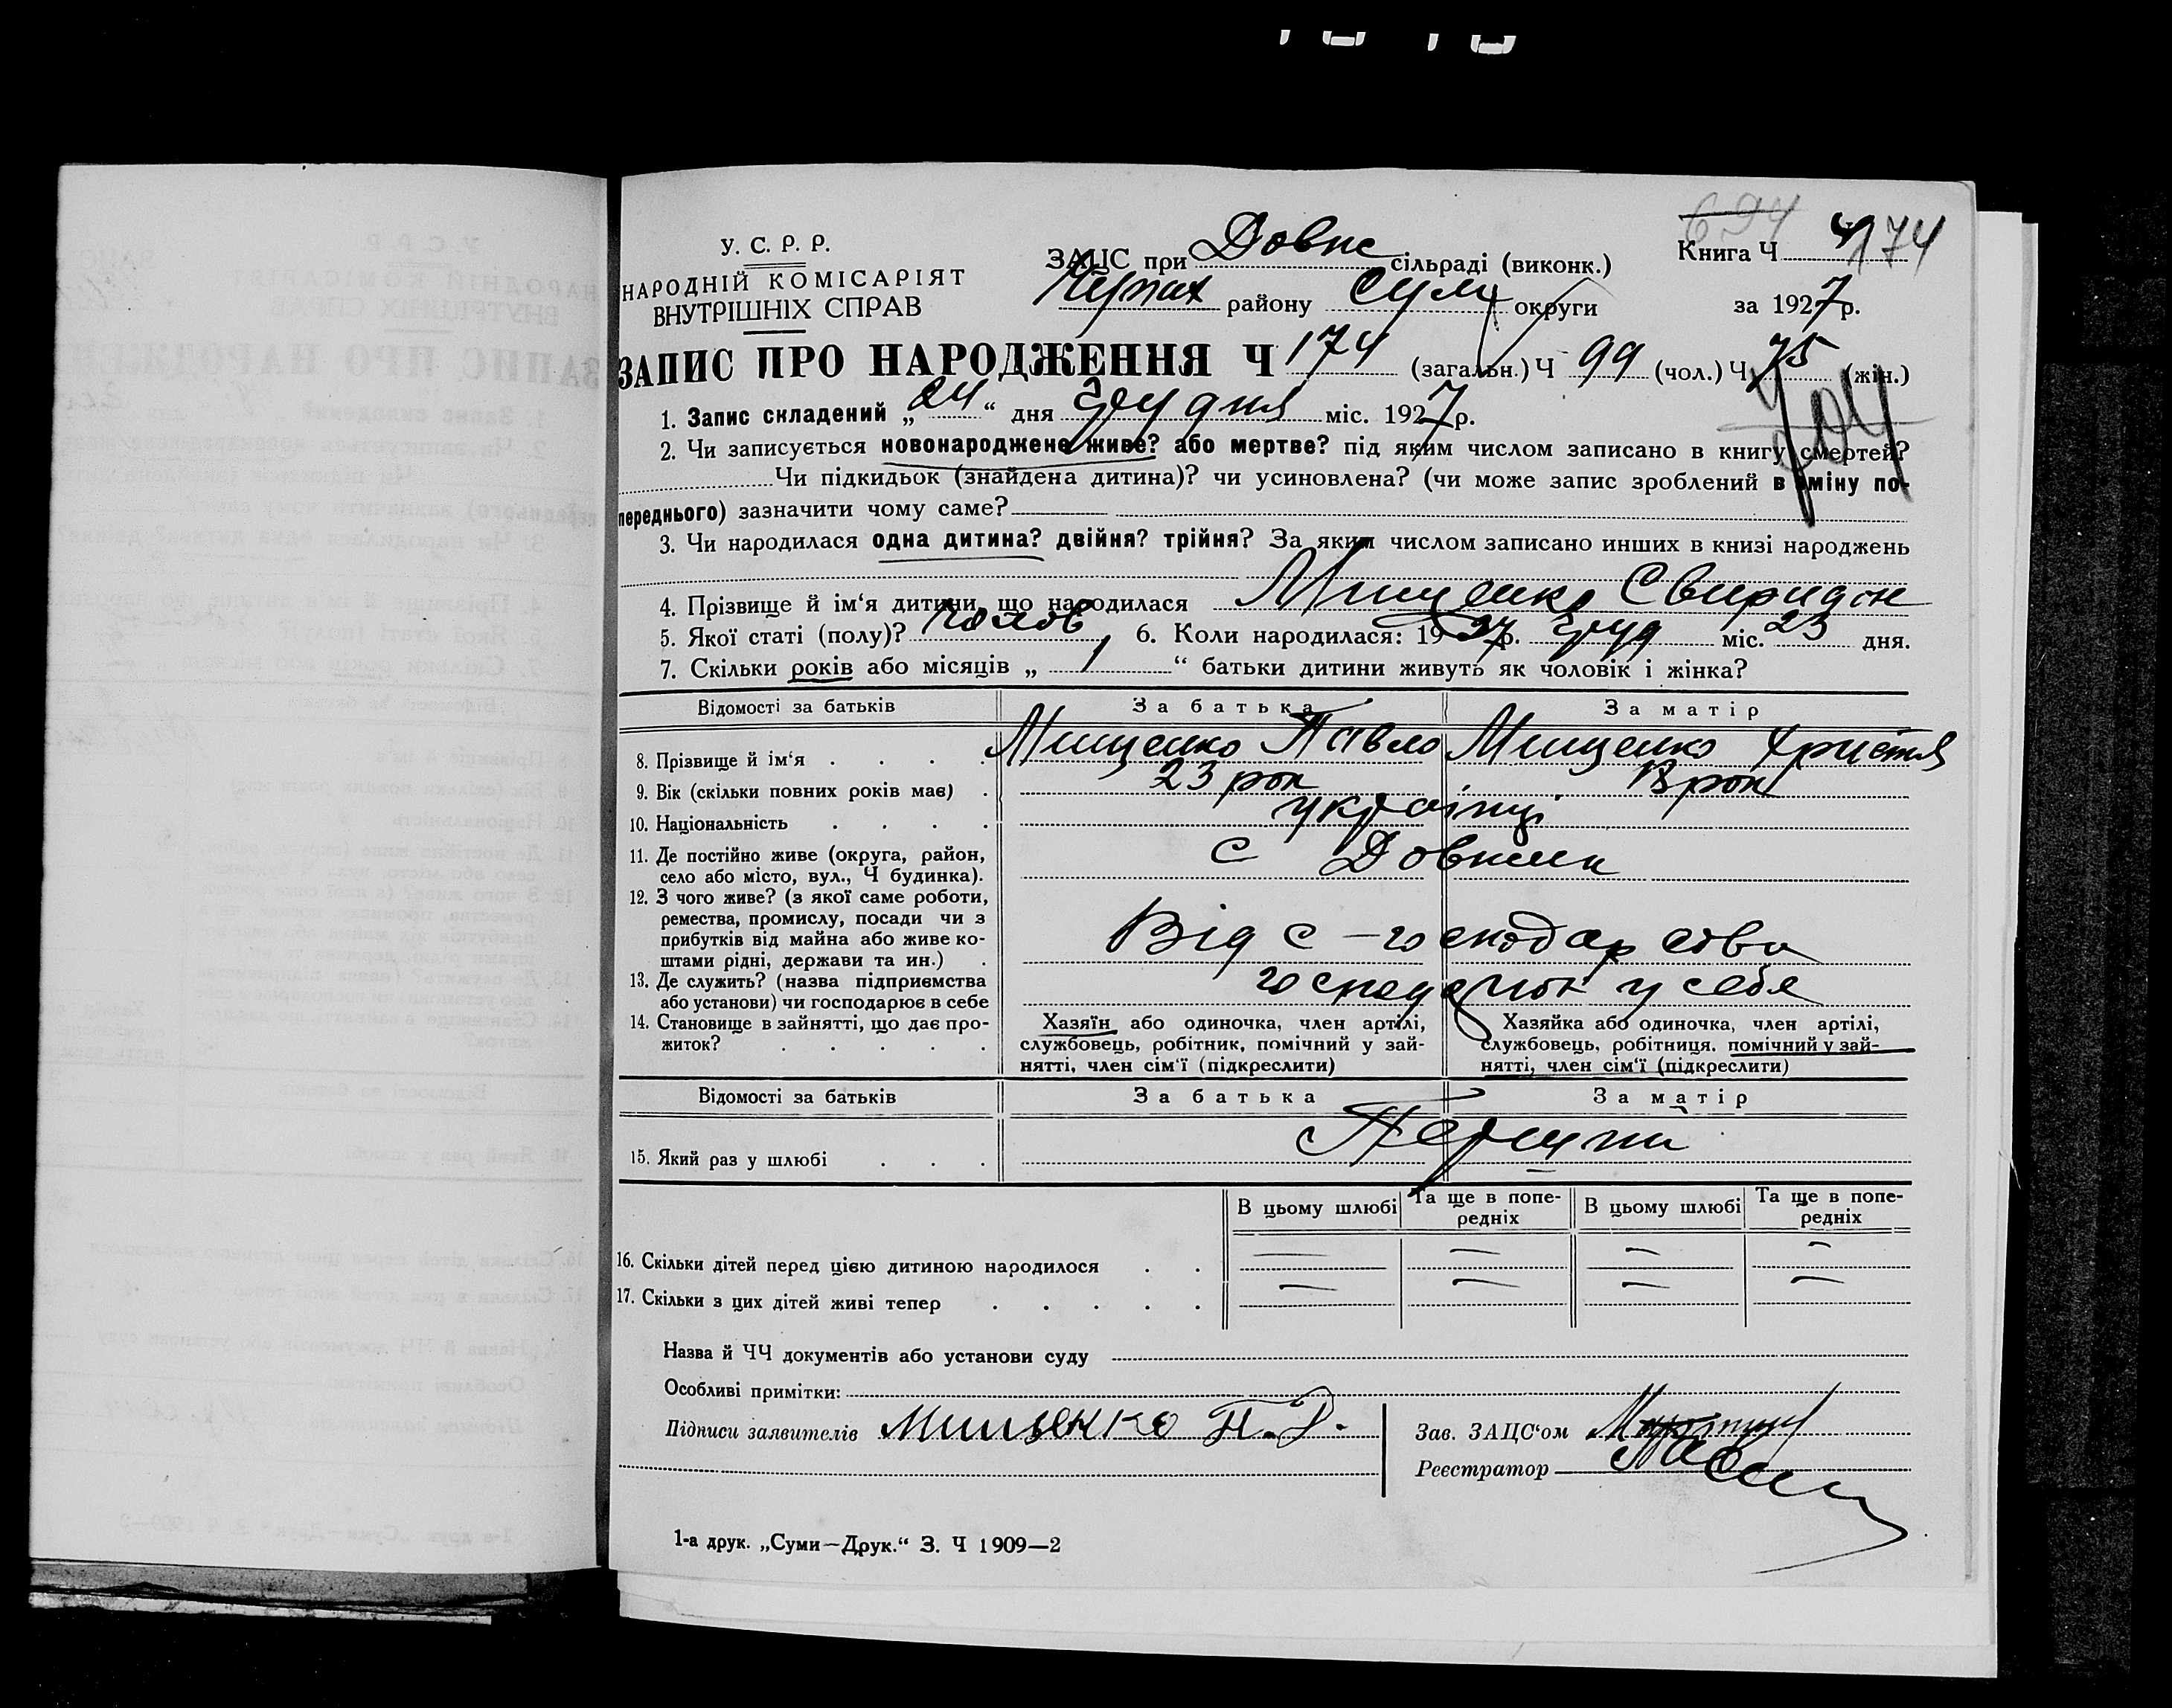 694
У. С. Р. Р.
НАРОДНІЙ КОМІСАРІЯТ
ВНУТРІШНІХ СПРАВ
ЗАЦС при Довж сільраді (виконк.)
району Сум округи
Книга Ч 174
за 1927 р.
ЗАПИС ПРО НАРОДЖЕННЯ Ч 174 (загальн.) Ч 99 (чол.) Ч 75 (жін.)
1. Запис складений „24“ дня Грудня міс. 1927 р.
2. Чи записується новонароджене живе? або мертве? під яким числом записано в книгу смертей?
Чи підкидьок (знайдена дитина)? чи усиновлена? (чи може запис зроблений в зміну по-
переднього) зазначити чому саме?
3. Чи народилася одна дитина? двійня? трійня? За яким числом записано инших в книзі народжень
4. Прізвище й ім‘я дитини, що народилася Мищенко Свиридон
5. Якої статі (полу)? чолов 6. Коли народилася: 1927 р. Груд міс. 23 дня.
7. Скільки років або місяців „ 1 “ батьки дитини живуть як чоловік і жінка?
Відомості за батьків За батька За матір
8. Прізвище й ім‘я Мищенко Павло Мищенко Христя
9. Вік (скільки повних років має) 23 рок рок
10. Національність українці
11. Де постійно живе (округа, район,
село або місто, вул., Ч будинка). с Довжик
12. З чого живе? (з якої саме роботи,
ремества, промислу, посади чи з
прибутків від майна або живе ко-
штами рідні, держави та ин.) Від с-господарства
13. Де служить? (назва підприємства
або установи) чи господарює в себе у себе
14. Становище в зайнятті, що дає про-
житок?
Хазяїн або одиночка, член артілі,
службовець, робітник, помічний у зай-
нятті, член сім‘ї (підкреслити)
Хазяйка або одиночка, член артілі,
службовець, робітниця, помічний у зай-
нятті, член сім‘ї (підкреслити)
Відомості за батьків За батька За матір
15. Який раз у шлюбі
В цьому шлюбі Та ще в попе-
редніх В цьому шлюбі Та ще в попе-
редніх
16. Скільки дітей перед цією дитиною народилося — — — —
17. Скільки з цих дітей живі тепер — — — —
Назва й ЧЧ документів або установи суду
Особливі примітки:
Підписи заявителів Мищенко П.
Зав. ЗАЦС‘ом
Реєстратор
1-а друк. „Суми—Друк.“ З. Ч 1909—2